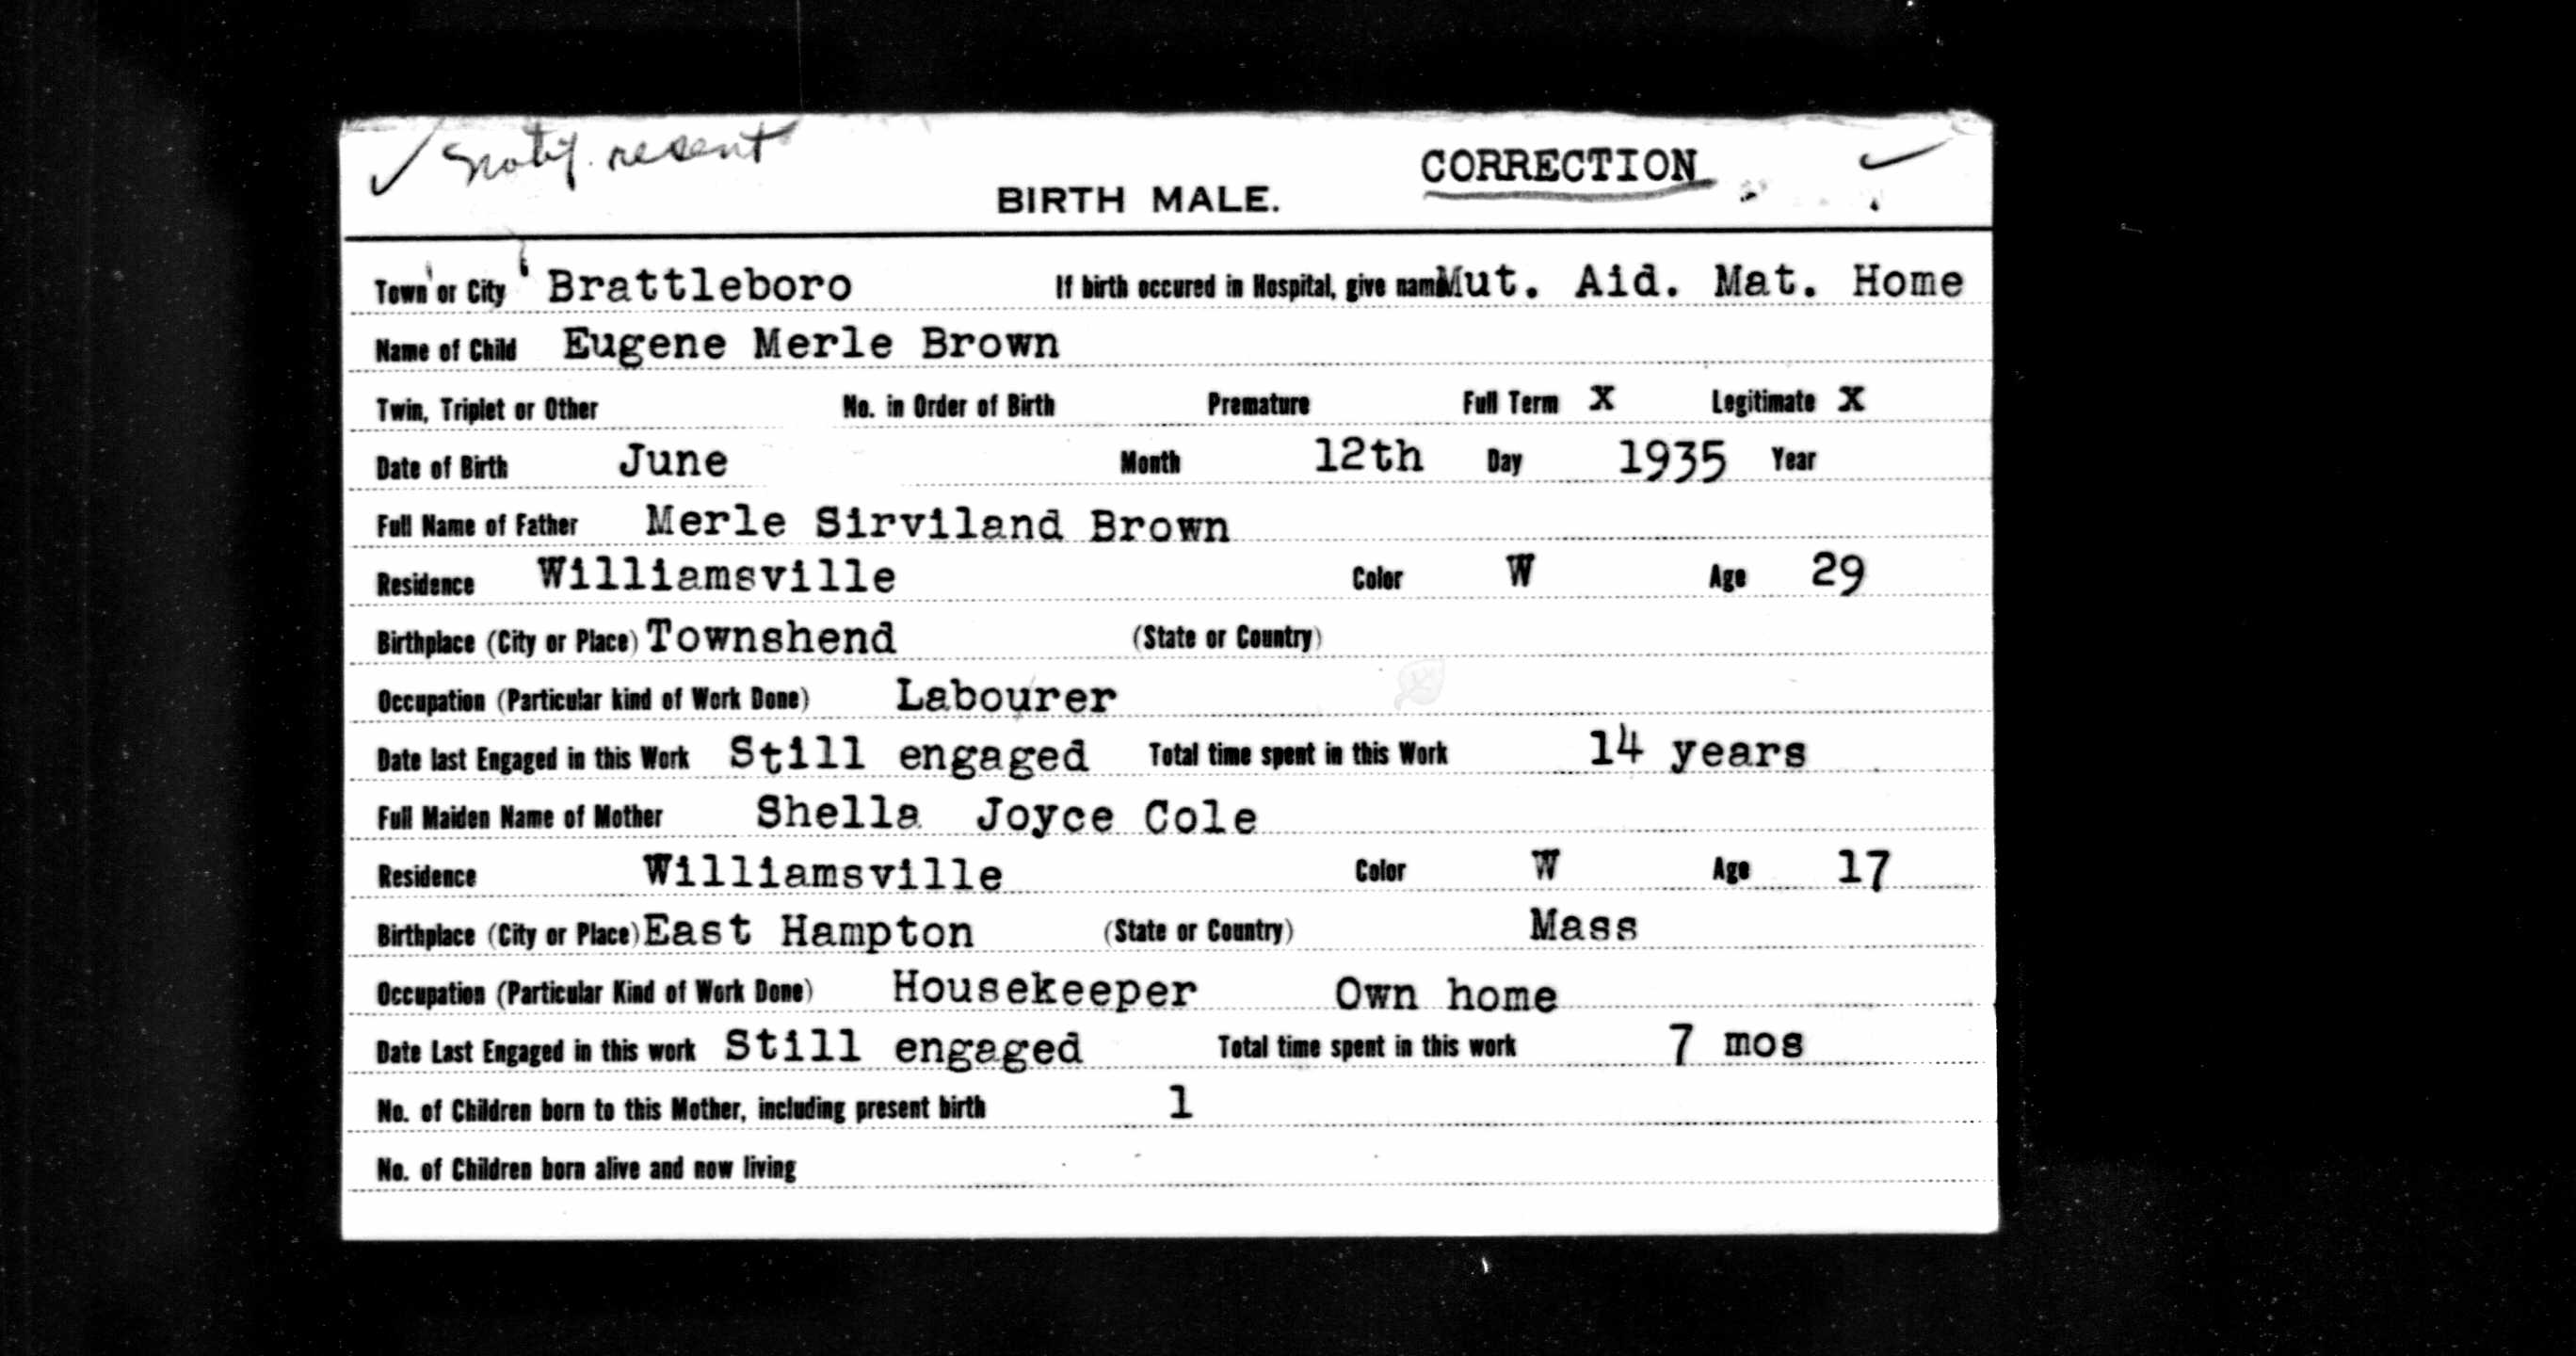 ✓ notif. resent
CORRECTION ✓
BIRTH MALE.
Town or City Brattleboro If birth occured in Hospital, give name Mut. Aid. Mat. Home
Name of Child Eugene Merle Brown
Twin, Triplet or Other No. in Order of Birth Premature Full Term X Legitimate X
Date of Birth June Month 12th Day 1935 Year
Full Name of Father Merle Sirviland Brown
Residence Williamsville Color W Age 29
Birthplace (City or Place) Townshend (State or Country)
Occupation (Particular kind of Work Done) Labourer
Date last Engaged in this Work Still engaged Total time spent in this Work 14 years
Full Maiden Name of Mother Shella Joyce Cole
Residence Williamsville Color W Age 17
Birthplace (City or Place) East Hampton (State or Country) Mass
Occupation (Particular Kind of Work Done) Housekeeper Own home
Date Last Engaged in this work Still engaged Total time spent in this work 7 mos
No. of Children born to this Mother, including present birth 1
No. of Children born alive and now living